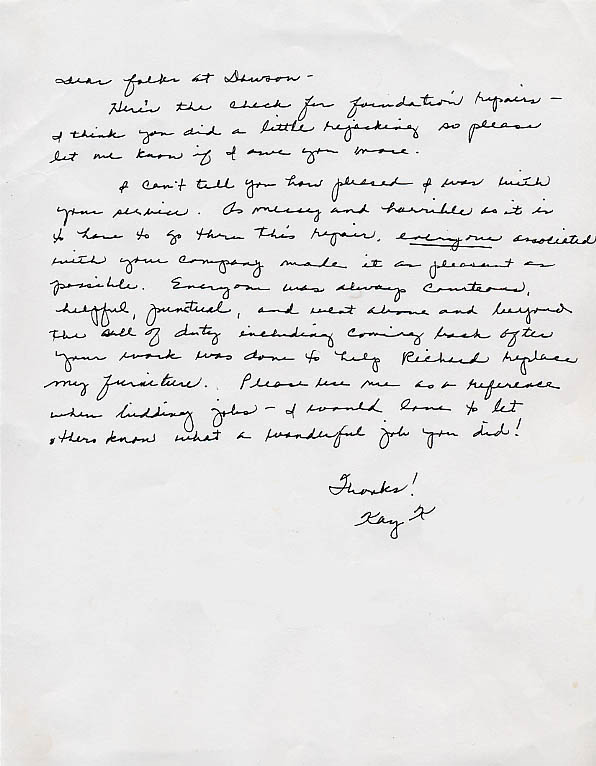 Dear folks at Dawson -
Here's the check for foundation repairs -
I think you did a little rejacking so please
let me know if I owe you more.
I can't tell you how pleased I was with
your service. As messy and horrible as it is
to have to go thru this repair, everyone associated
with your company made it as pleasant as
possible. Everyone was always courteous,
helpful, punctual, and went above and beyond
the call of duty including coming back after
your work was done to help Richard replace
my furniture. Please use me as a reference
when bidding jobs - I would love to let
others know what a wonderful job you did!
Thanks!
Kay K